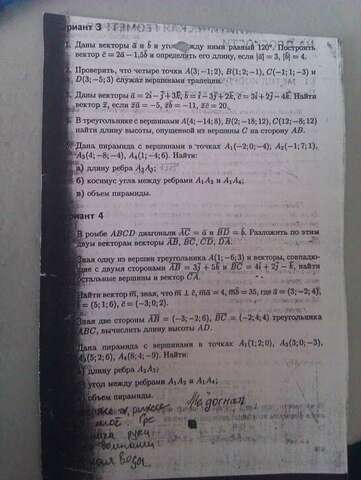 Вариант 3
Даны векторы a и b и угол между ними равный 120°. Построить
вектор c = 2a − 1,5b и определить его длину, если |a| = 3, |b| = 4.
Проверить, что четыре точки A(3;−1;2), B(1;2;−1), C(−1;1;−3) и
D(3;−5;3) служат вершинами трапеции.
Даны векторы a = 2i − j + 3k, b = i − 3j + 2k, c = 3i + 2j − 4k. Найти
вектор x, если xa = −5, xb = −11, xc = 20.
В треугольнике с вершинами A(4;−14;8), B(2;−18;12), C(12;−8;12)
найти длину высоты, опущенной из вершины C на сторону AB.
Дана пирамида с вершинами в точках A₁(−2;0;−4), A₂(−1;7;1),
A₃(4;−8;−4), A₄(1;−4;6). Найти:
а) длину ребра A₂A₃;
б) косинус угла между ребрами A₁A₂ и A₁A₄;
в) объем пирамиды.
Вариант 4
В ромбе ABCD диагонали AC = a и BD = b. Разложить по этим
двум векторам векторы AB, BC, CD, DA.
Зная одну из вершин треугольника A(1;−6;3) и векторы, совпадаю-
щие с двумя сторонами AB = 3j + 5k и BC = 4i + 2j − k, найти
остальные вершины и вектор CA.
Найти вектор m, зная, что m ⊥ c, ma = 4, mb = 35, где a = (3;−2;4),
b = (5;1;6), c = (−3;0;2).
Зная две стороны AB = (−3;−2;6), BC = (−2;4;4) треугольника
ABC, вычислить длину высоты AD.
Дана пирамида с вершинами в точках A₁(1;2;0), A₂(3;0;−3),
A₃(5;2;6), A₄(8;4;−9). Найти:
а) длину ребра A₂A₃;
б) угол между ребрами A₁A₂ и A₁A₄;
в) объем пирамиды.